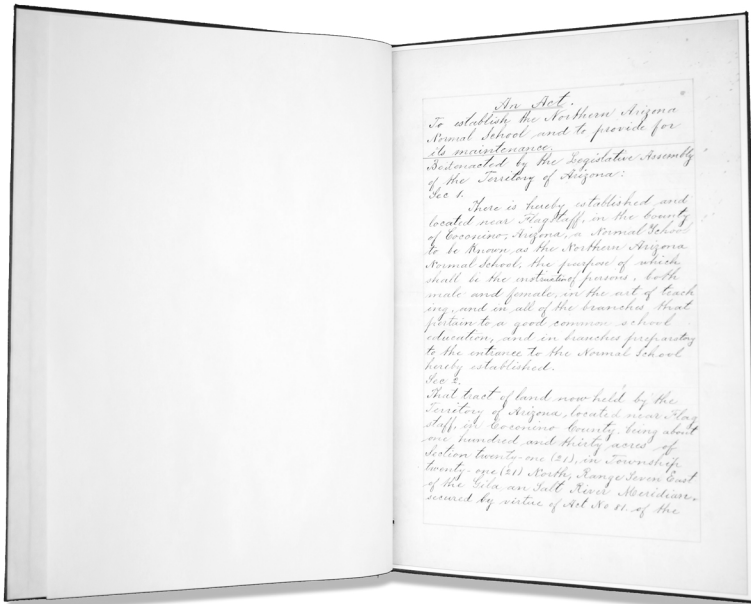 An Act.
To establish the Northern Arizona
Normal School and to provide for
its maintenance.
Be it enacted by the Legislative Assembly
of the Territory of Arizona:
Sec 1.
There is hereby established and
located near Flagstaff, in the County
of Coconino, Arizona, a Normal School
to be known as the Northern Arizona
Normal School, the purpose of which
shall be the instruction of persons, both
male and female, in the art of teach
ing, and in all of the branches that
pertain to a good common school
education, and in branches preparatory
to the entrance to the Normal School
hereby established.
Sec 2.
That tract of land now held by the
Territory of Arizona, located near Flag
staff, in Coconino County, being about
one hundred and thirty acres of
Section twenty-one (21), in Township
twenty-one (21) North, Range Seven East
of the Gila an Salt River Meridian,
secured by virtue of Act No 81. of the